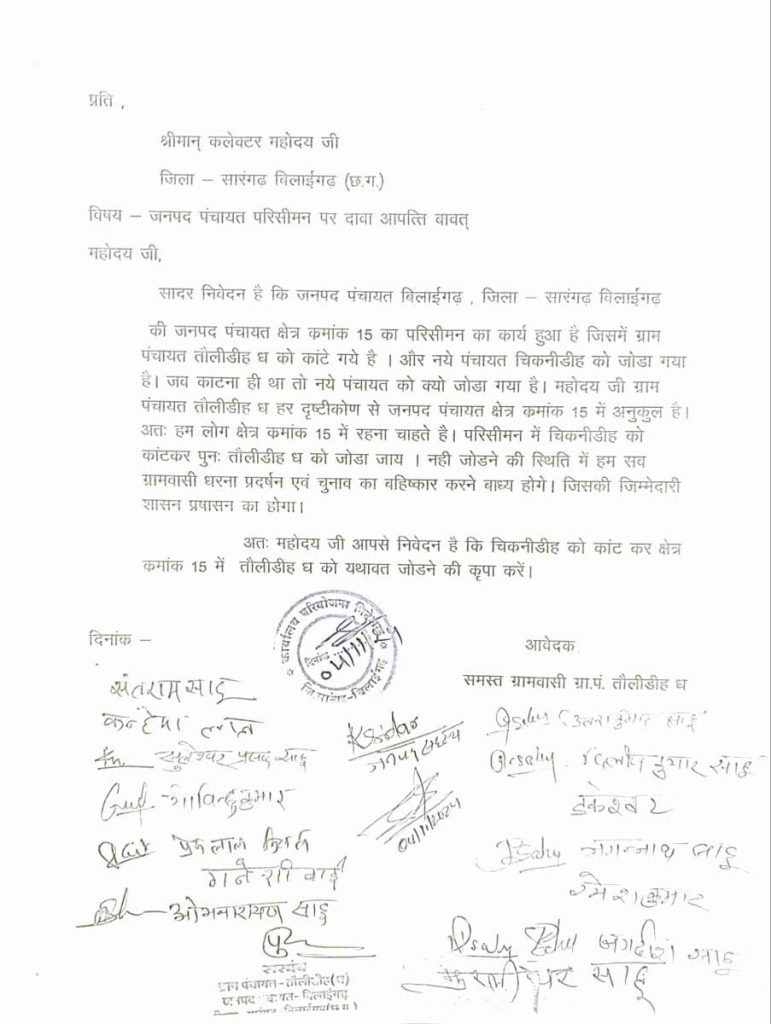 प्रति ,
श्रीमान् कलेक्टर महोदय जी
जिला – सारंगढ़ बिलाईगढ़ (छ.ग.)
विषय – जनपद पंचायत परिसीमन पर दावा आपत्ति वावत्
महोदय जी,
सादर निवेदन है कि जनपद पंचायत बिलाईगढ़ , जिला – सारंगढ़ बिलाईगढ़
की जनपद पंचायत क्षेत्र कमांक 15 का परिसीमन का कार्य हुआ है जिसमें ग्राम
पंचायत तौलीडीह ध को कांटे गये है । और नये पंचायत चिकनीडीह को जोडा गया
है। जव काटना ही था तो नये पंचायत को क्यो जोडा गया है। महोदय जी ग्राम
पंचायत तौलीडीह ध हर दृष्टीकोण से जनपद पंचायत क्षेत्र कमांक 15 में अनुकुल है।
अतः हम लोग क्षेत्र कमांक 15 में रहना चाहते है। परिसीमन में चिकनीडीह को
कांटकर पुनः तौलीडीह ध को जोडा जाय । नही जोडने की स्थिति में हम सव
ग्रामवासी धरना प्रदर्षन एवं चुनाव का बहिष्कार करने बाध्य होगे। जिसकी जिम्मेदारी
शासन प्रषासन का होगा।
अतः महोदय जी आपसे निवेदन है कि चिकनीडीह को कांट कर क्षेत्र
कमांक 15 में तौलीडीह ध को यथावत जोडने की कृपा करें।
कार्यालय परियोजना
दिनांक
04/11/
बिलाईगढ़
दिनांक –
आवेदक
समस्त ग्रामवासी ग्रा.पं. तौलीडीह ध
संतराम साहू
जनपद सदस्य
साहू
दिलीप कुमार साहू
गोविन्द कुमार
04/11/2024
डकेश्वर
प्रेमलाल
जगन्नाथ साहू
गनेशी बाई
रमेश कुमार
ओमनारायण साहू
जगदीश साहू
साहू
सरपंच
ग्राम पंचायत-तौलीडीह(ध)
जनपद पंचायत-बिलाईगढ़